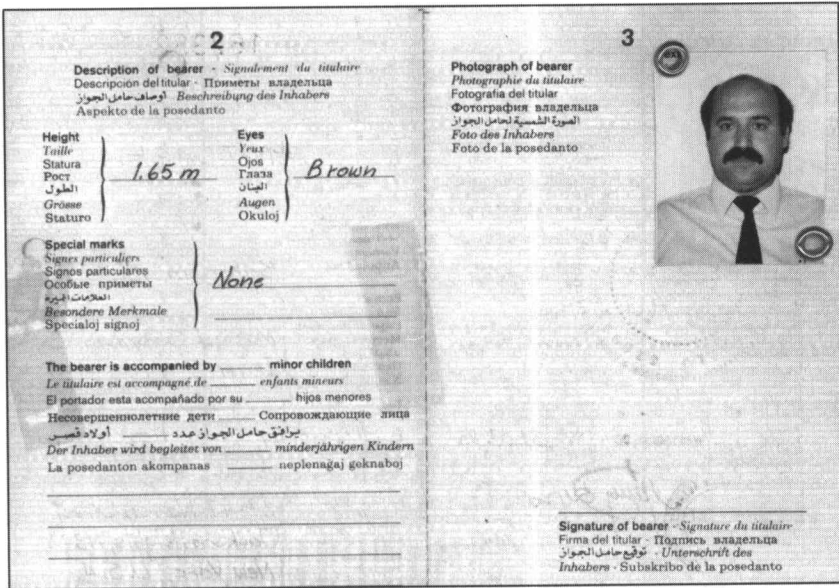 2
Description of bearer - Signalement du titulaire
Descripción del titular - Приметы владельца
أوصاف حامل الجواز Beschreibung des Inhabers
Aspekto de la posedanto
Height
Taille
Statura
Рост
الطول
Grösse
Staturo
1.65 m
Eyes
Yeux
Ojos
Глаза
العينان
Augen
Okuloj
Brown
Special marks
Signes particuliers
Signos particulares
Особые приметы
العلامات المميزة
Besondere Merkmale
Specialoj signoj
None
The bearer is accompanied by ____ minor children
Le titulaire est accompagné de ____ enfants mineurs
El portador esta acompañado por su ____ hijos menores
Несовершеннолетние дети ____ Сопровождающие лица
يرافق حامل الجواز عدد ____ أولاد قصر
Der Inhaber wird begleitet von ____ minderjährigen Kindern
La posedanton akompanas ____ neplenaĝaj geknaboj
3
Photograph of bearer
Photographie du titulaire
Fotografia del titular
Фотография владельца
الصورة الشمسية لحامل الجواز
Foto des Inhabers
Foto de la posedanto
Signature of bearer - Signature du titulaire
Firma del titular - Подпись владельца
توقيع حامل الجواز - Unterschrift des
Inhabers - Subskribo de la posedanto